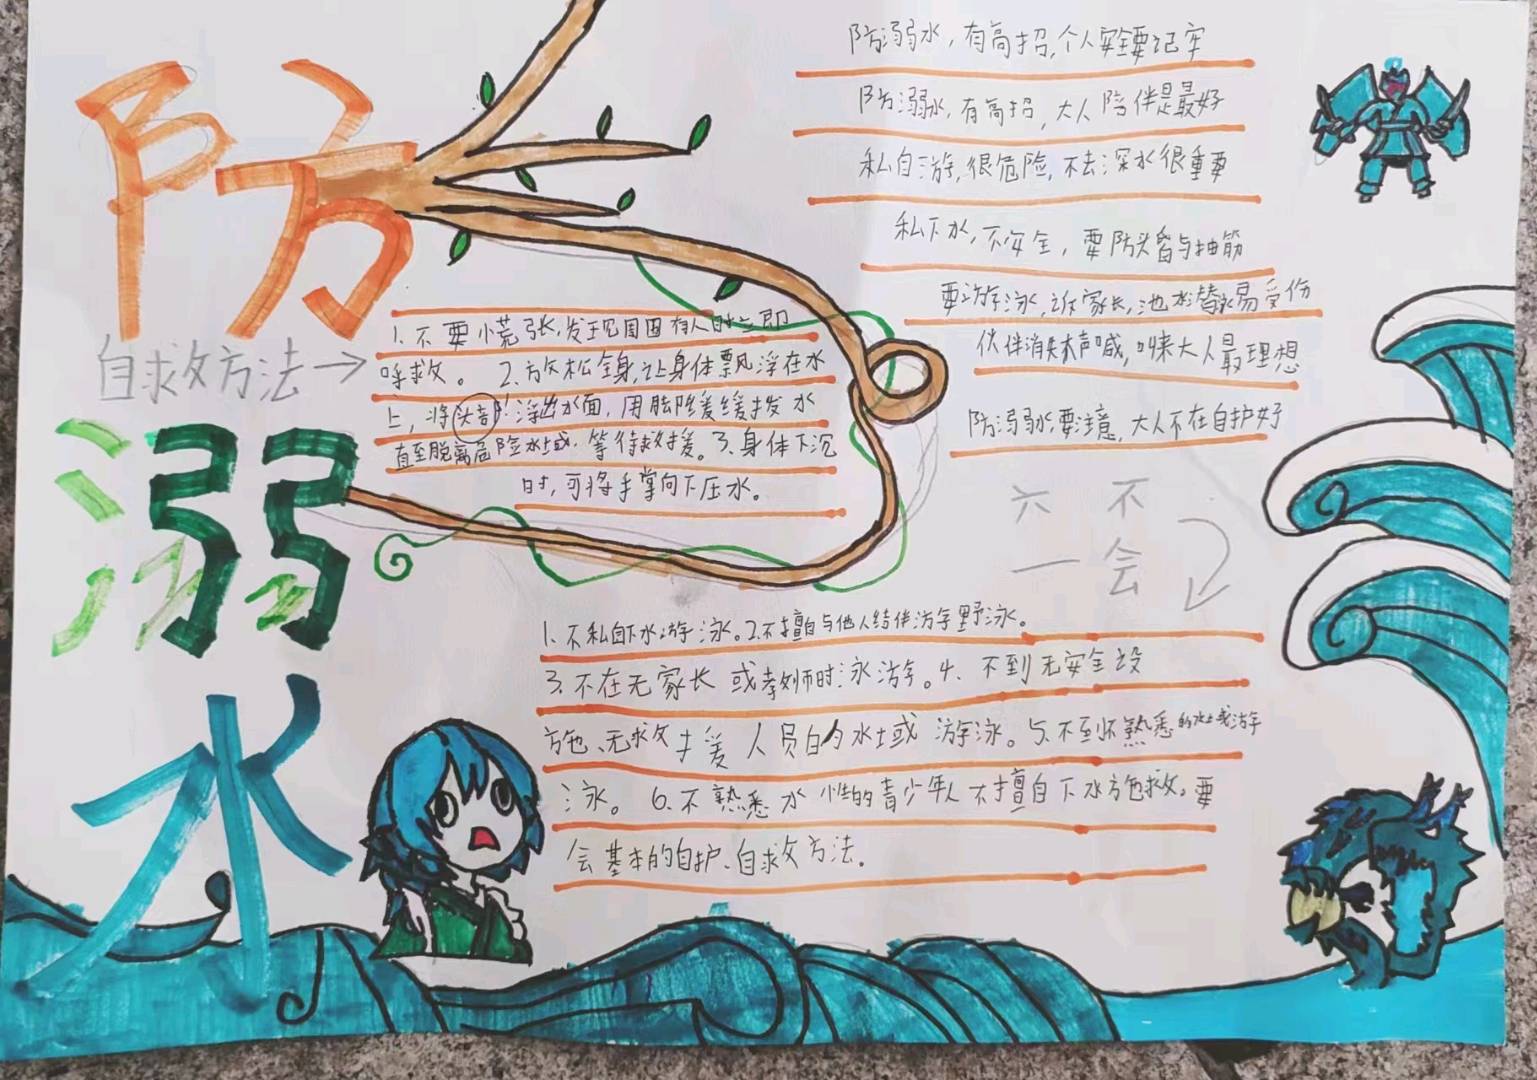 防溺水
防溺水，有高招，个人安全要记牢
防溺水，有高招，大人陪伴是最好
私自游，很危险，不去深水很重要
私下水，不安全，要防头昏与抽筋
要游泳，诉家长，池水潜泳易受伤
伙伴消失大声喊，叫来大人最理想
防溺水，要注意，大人不在自护好
自救方法→
1.不要慌张，发现周围有人时立即
呼救。 2.放松全身，让身体飘浮在水
上，将头部浮出水面，用脚踢缓缓拨水
直至脱离危险水域，等待救援。3.身体下沉
时，可将手掌向下压水。
六不
一会
1.不私自下水游泳。2.不擅自与他人结伴游野泳。
3.不在无家长或老师时泳游。4.不到无安全设
施、无救援人员的水域游泳。5.不到不熟悉的水域游
泳。6.不熟悉水性的青少年人不擅自下水施救。要
会基本的自护、自救方法。